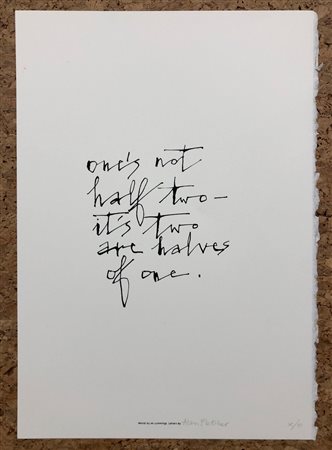 one's not
half two—
it's two
are halves
of one.
words by ee cummings. Letters by Alan Fletcher